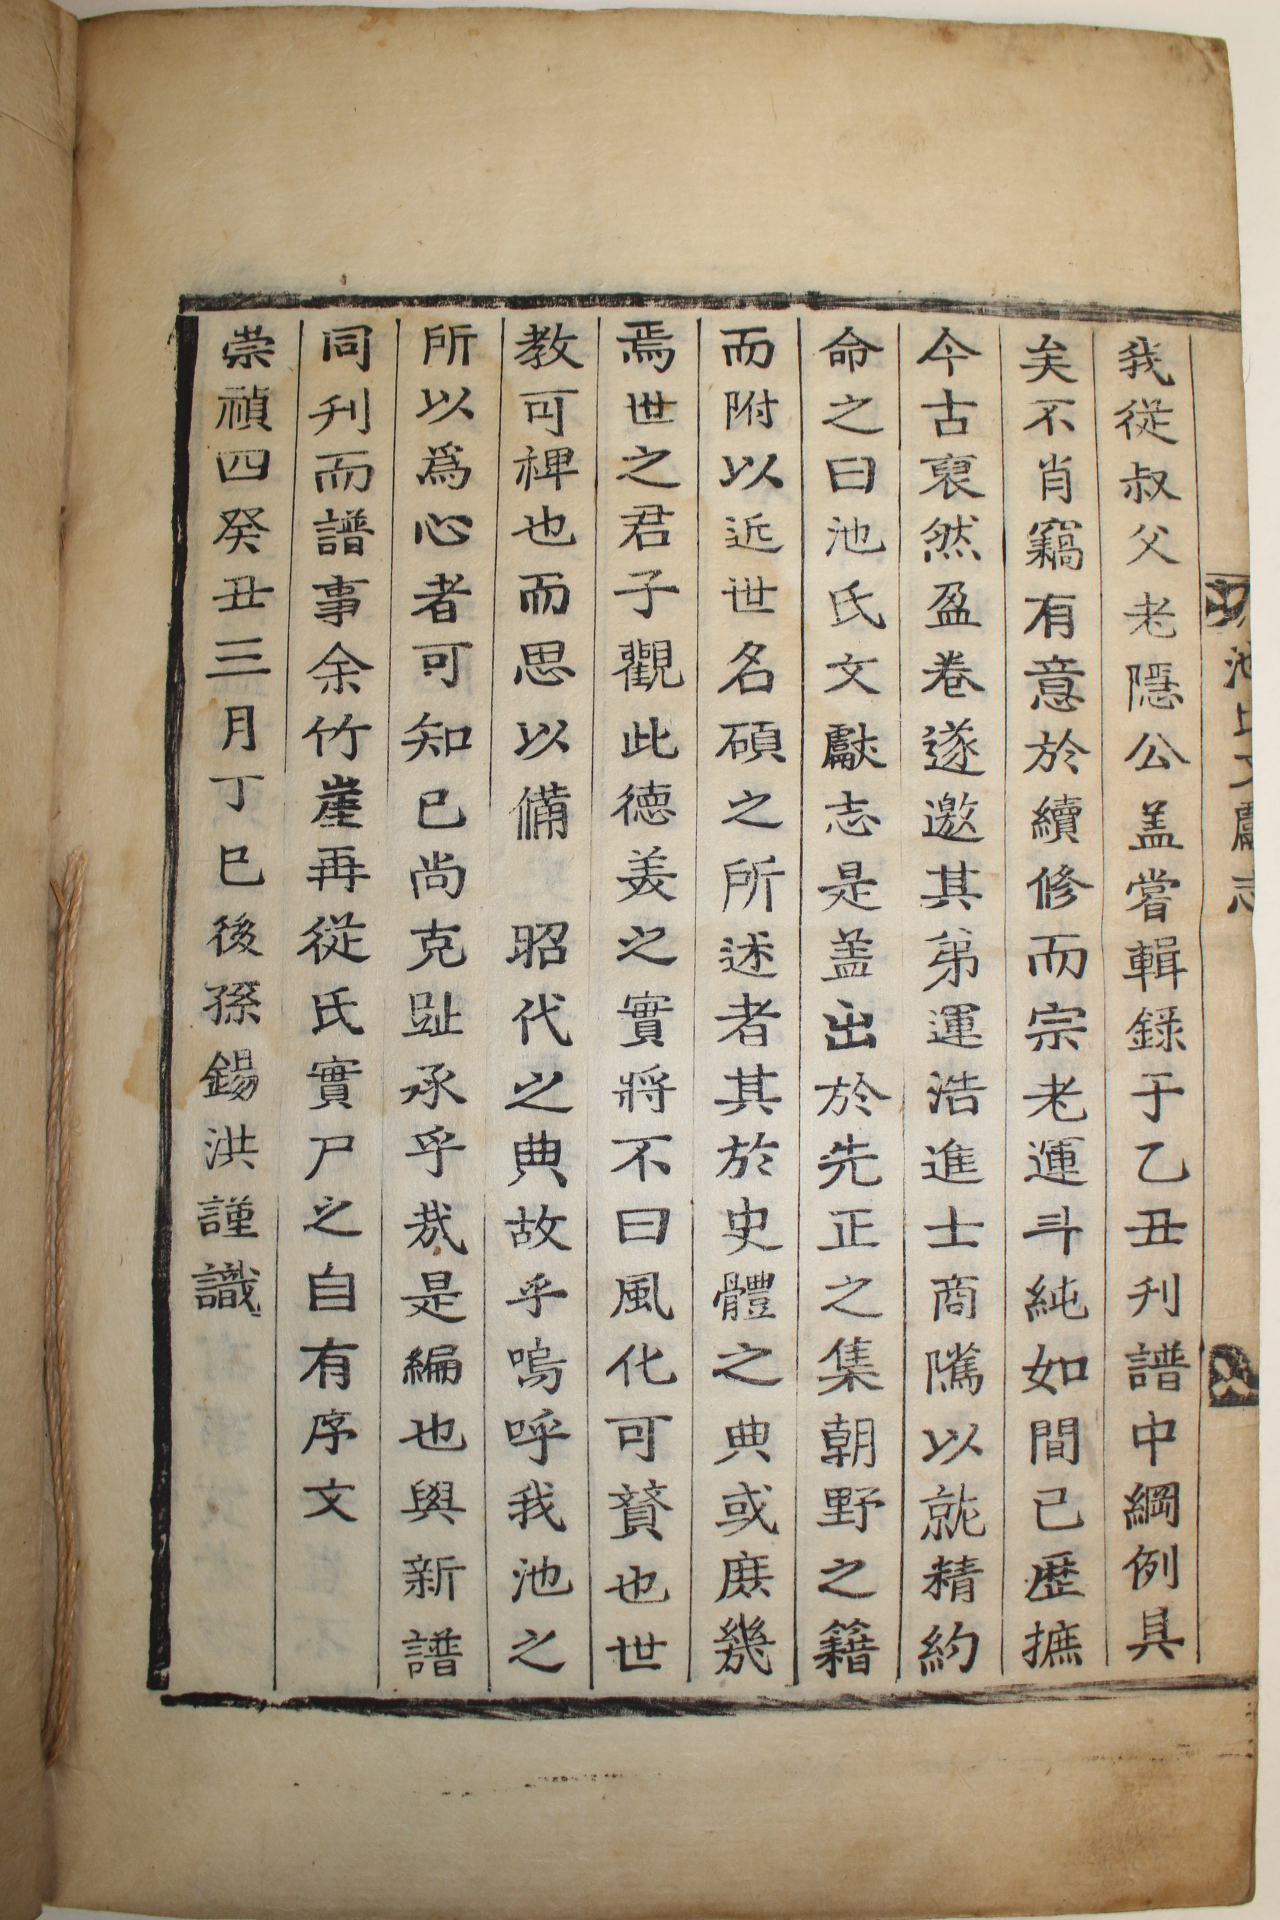 池氏文獻志
我從叔父老隱公盖嘗輯錄于乙丑刋譜中綱例具
矣不肖竊有意於續修而宗老運斗純如間已歷摭
今古裒然盈卷遂邀其弟運浩進士商隲以就精約
命之曰池氏文獻志是盖出於先正之集朝野之籍
而附以近世名碩之所述者其於史體之典或庶幾
焉世之君子觀此德美之實將不曰風化可賛也世
教可裨也而思以備 昭代之典故乎嗚呼我池之
所以爲心者可知已尚克趾承乎哉是編也與新譜
同刋而譜事余竹崖再從氏實尸之自有序文
崇禎四癸丑三月丁巳後孫錫洪謹識